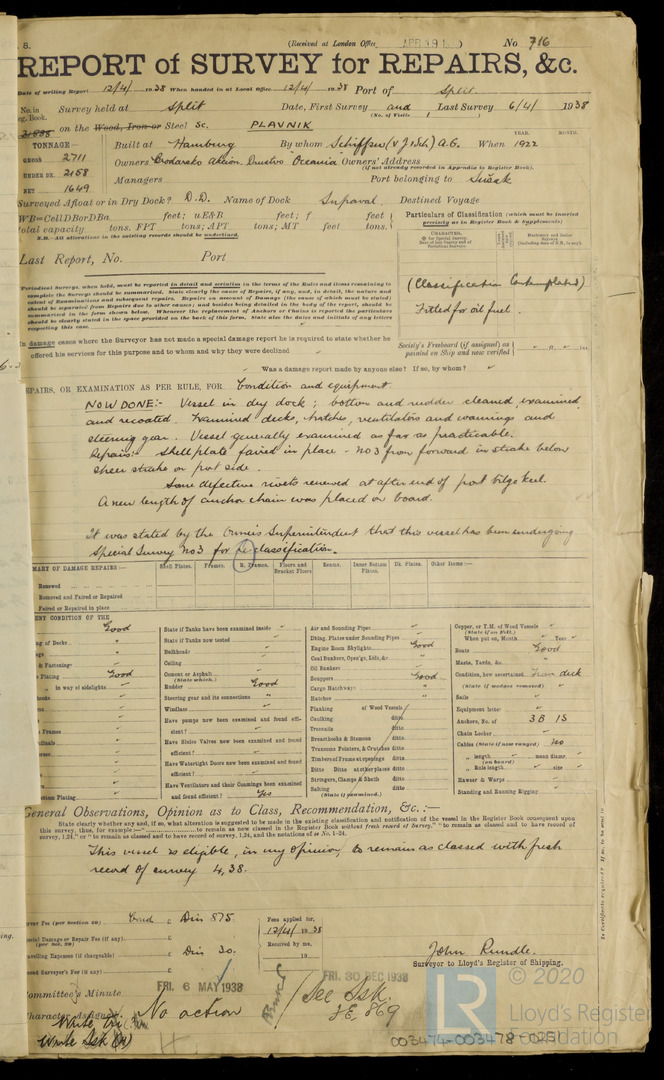 (Received at London Office APR 1
No 716
REPORT of SURVEY for REPAIRS, &c.
Date of writing Report 12/4/ 1938 When handed in at Local Office 12/4/ 1938 Port of Split
No. in Survey held at Split Date, First Survey and Last Survey 6/4/ 1938
eg. Book. (No. of Visits )
on the Wood, Iron or Steel Sc. PLAVNIK
TONNAGE Built at Hamburg By whom Schiffsw (v J) A.G. When 1922
YEAR. MONTH.
GROSS 2711 Owners Brodarsko Akcion. Drustvo Oceania Owners' Address
(if not already recorded in Appendix to Register Book).
UNDER DK. 2158
NET 1649 Managers Port belonging to Susak
Surveyed Afloat or in Dry Dock? D.D. Name of Dock Supaval. Destined Voyage
WB=CellDBorDBa feet; uE&B feet; f feet
total capacity tons. FPT tons; APT tons; MT feet tons.
N.B.—All alterations in the existing records should be underlined.
Particulars of Classification (which must be inserted precisely as in Register Book & Supplements)
Last Report, No. Port
(Classification Contemplated)
Fitted for oil fuel.
Periodical Surveys, when held, must be reported in detail and seriatim in the terms of the Rules and items remaining to
complete the Survey should be summarised. State clearly the cause of Repairs, if any, and, in detail, the nature and
extent of Examinations and subsequent repairs. Repairs on account of Damage (the cause of which must be stated)
should be separated from Repairs due to other causes; and besides being detailed in the body of the report, should be
summarised in the form shown below. Whenever the replacement of Anchors or Chains is reported the particulars
should be clearly stated in the space provided on the back of this form. State also the dates and initials of any letters
respecting this case.
In damage cases where the Surveyor has not made a special damage report he is required to state whether he
offered his services for this purpose and to whom and why they were declined
Society's Freeboard (if assigned) as
painted on Ship and now verified
Was a damage report made by anyone else? If so, by whom?
EPAIRS, OR EXAMINATION AS PER RULE, FOR Condition and equipment
NOW DONE:- Vessel in dry dock; bottom and rudder cleaned, examined
and recoated. Examined decks, hatches, ventilators and coamings and
steering gear. Vessel generally examined as far as practicable.
Repairs:- Shell plate faired in place - No3 from forward in strake below
sheer strake on port side.
Some defective rivets renewed at after end of port bilge keel.
A new length of anchor chain was placed on board.
It was stated by the Owners Superintendent that this vessel has been undergoing
Special Survey No3 for Re classification.
MARY OF DAMAGE REPAIRS:— Shell Plates. Frames. R. Frames. Floors and Bracket Floors Beams. Inner Bottom Plates. Dk. Plates. Other Items:—
Renewed
Removed and Faired or Repaired
Faired or Repaired in place
ENT CONDITION OF THE
Good
ng of Decks
& Fastenings
Plating Good
in way of sidelights
Frames
State if Tanks have been examined inside
State if Tanks now tested
Bulkheads
Ceiling
Cement or Asphalt
(State which.)
Rudder Good
Steering gear and its connections "
Windlass
Have pumps now been examined and found efficient?
Have Sluice Valves now been examined and found efficient?
Have Watertight Doors now been examined and found efficient?
Have Ventilators and their Coamings been examined
and found efficient? Yes
Air and Sounding Pipes
Dblng. Plates under Sounding Pipes
Engine Room Skylights Good
Coal Bunkers, Open'gs, Lids, &c.
Oil Bunkers
Scuppers Good
Cargo Hatchways "
Hatches "
Planking of Wood Vessels
Caulking ditto
Treenails ditto
Breasthooks & Stemson ditto
Transoms Pointers, & Crutches ditto
Timbers of Frame at openings ditto
Ditto Ditto at other places ditto
Stringers, Clamps & Shelf ditto
Salting ditto
(State if examined.)
Copper, or Y.M. of Wood Vessels
(State if on Felt.)
When put on, Month Year
Boats Good
Masts, Yards, &c. "
Condition, how ascertained From deck
(State if wedges removed)
Sails
Equipment letter
Anchors, No. of 3B 1S
Chain Locker
Cables (State if now ranged) No
" length mean diamr.
(on board)
" Rule length size
Hawser & Warps
Standing and Running Rigging
General Observations, Opinion as to Class, Recommendation, &c.:—
State clearly whether any and, if so, what alteration is suggested to be made in the existing classification and notification of the vessel in the Register Book consequent upon
this survey, thus, for example:— to remain as now classed in the Register Book without fresh record of Survey," "to remain as classed and to have record of
survey, 1,24," or "to remain as classed and to have record of survey, 1.24, and the notations of ss No. 1-24.
This vessel is eligible, in my opinion, to remain as classed with fresh
record of survey 4,38.
urvey Fee (per Section 29) £ Din 875.
Fees applied for, 12/4/ 1938
ecial Damage or Repair Fee (if any) £
(per Sec. 29)
Received by me, 19
avelling Expenses (if chargeable) £ Din 30.
ond Surveyor's Fee (if any) £
John Rundle.
Surveyor to Lloyd's Register of Shipping.
ommittee's Minute FRI. 6 MAY 1938
FRI. 30 DEC 1938
haracter Assigned No action
See Ssk.
JE, 869
Write Ssk
© 2020
LR
Lloyd's Register
Foundation
003474-003478-0251